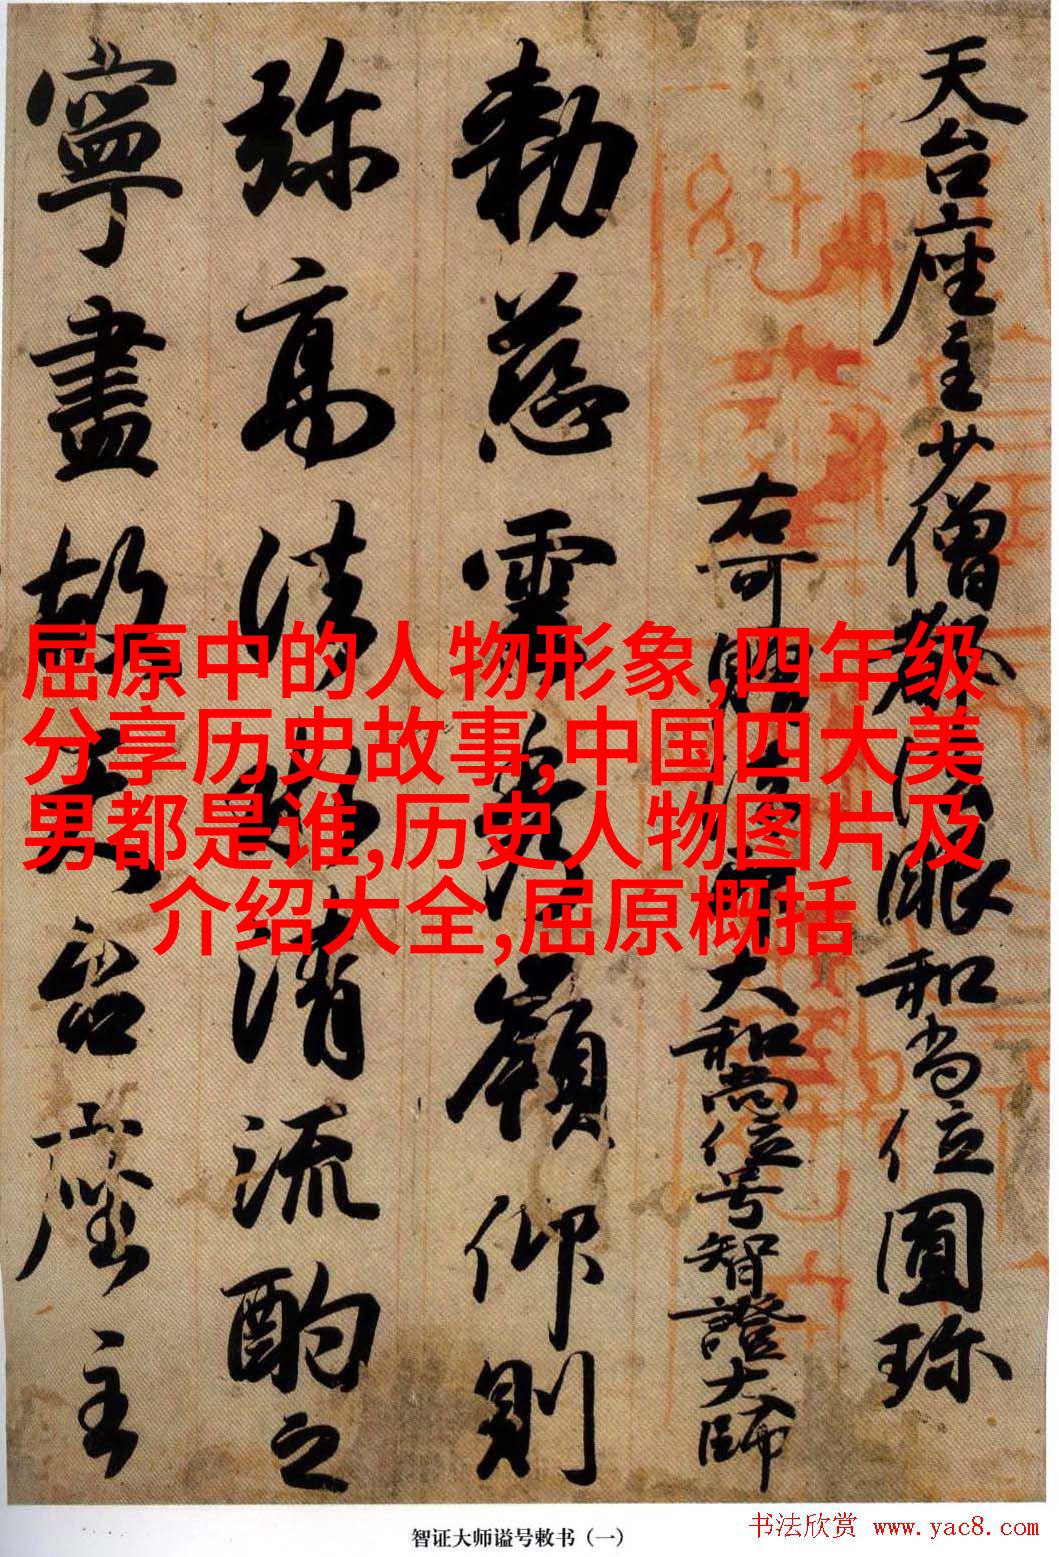 天台座主少僧都法眼和尚位圓珍
右可贈法印大和尚位号智證大師
勅慈雲秀嶺仰則
弥高法海清流酌之
寧盡故天台座主
屈原中的人物形象,四年级
分享历史故事,中国四大美
男都是谁,历史人物图片及
介绍大全,屈原概括
智证大师谥号敕书（一）
书法欣赏 www.yac8.com